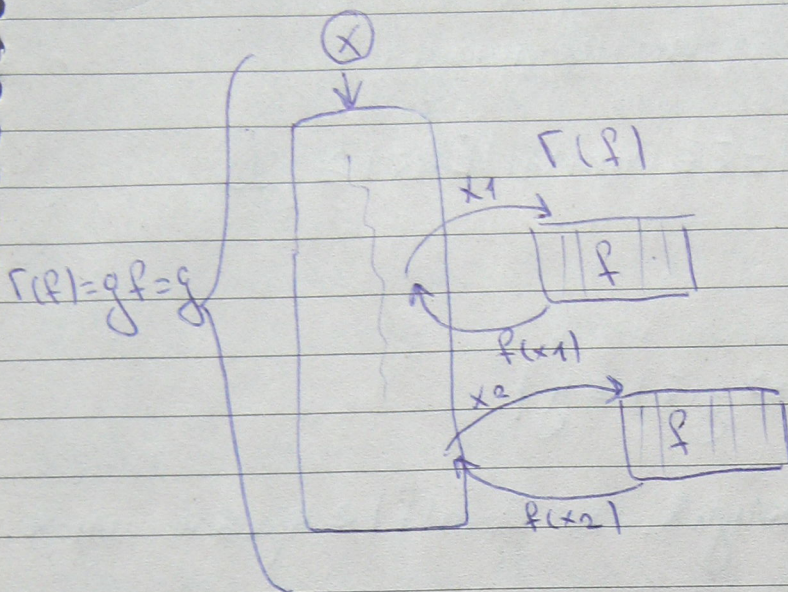 x
Γ(f)
x1
f
Γ(f)=gf=g
f(x1)
x2
f
f(x2)